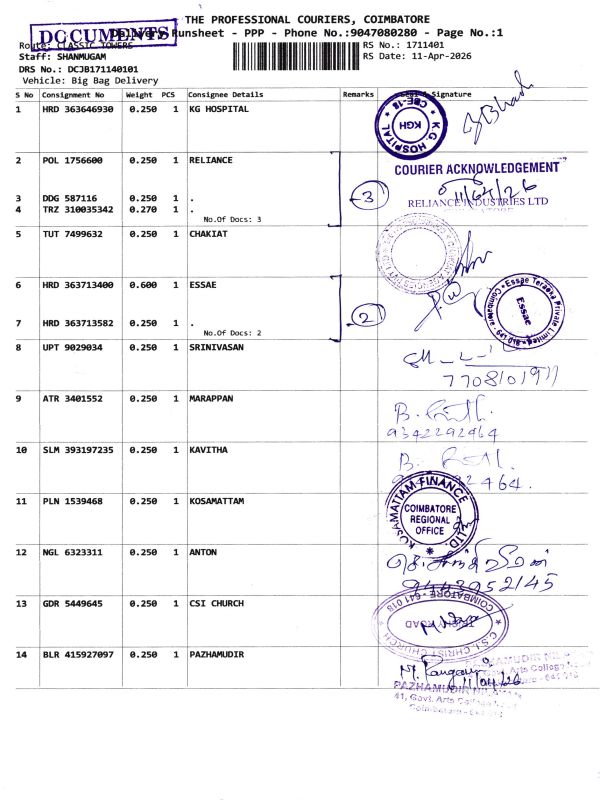 THE PROFESSIONAL COURIERS, COIMBATORE
DOCUMENTS
Delivery Runsheet - PPP - Phone No.:9047080280 - Page No.:1
Route: CLASSIC TOWERS
RS No.: 1711401
Staff: SHANMUGAM
RS Date: 11-Apr-2026
DRS No.: DCJB171140101
Vehicle: Big Bag Delivery
S No Consignment No Weight PCS Consignee Details Remarks Signature
1 HRD 363646930 0.250 1 KG HOSPITAL
K.G. HOSPITAL
KGH
CBE-18
2 POL 1756600 0.250 1 RELIANCE
COURIER ACKNOWLEDGEMENT
3 DDG 587116 0.250 1 .
3
11/04/26
4 TRZ 310035342 0.270 1 .
RELIANCE INDUSTRIES LTD
No.Of Docs: 3
5 TUT 7499632 0.250 1 CHAKIAT
6 HRD 363713400 0.600 1 ESSAE
Essae Teraoka Private Limited
Essae
Coimbatore - 641 018
2
7 HRD 363713582 0.250 1 .
No.Of Docs: 2
8 UPT 9029034 0.250 1 SRINIVASAN
9 ATR 3401552 0.250 1 MARAPPAN
9342292464
10 SLM 393197235 0.250 1 KAVITHA
2464.
11 PLN 1539468 0.250 1 KOSAMATTAM
KOSAMATTAM FINANCE LTD.
COIMBATORE
REGIONAL
OFFICE
12 NGL 6323311 0.250 1 ANTON
9442952145
13 GDR 5449645 0.250 1 CSI CHURCH
COIMBATORE - 641 018
C.S.I. CHRIST CHURCH
ROAD
14 BLR 415927097 0.250 1 PAZHAMUDIR
11/04/26
PAZHAMUDIR
41, Govt. Arts College
Coimbatore - 641 018